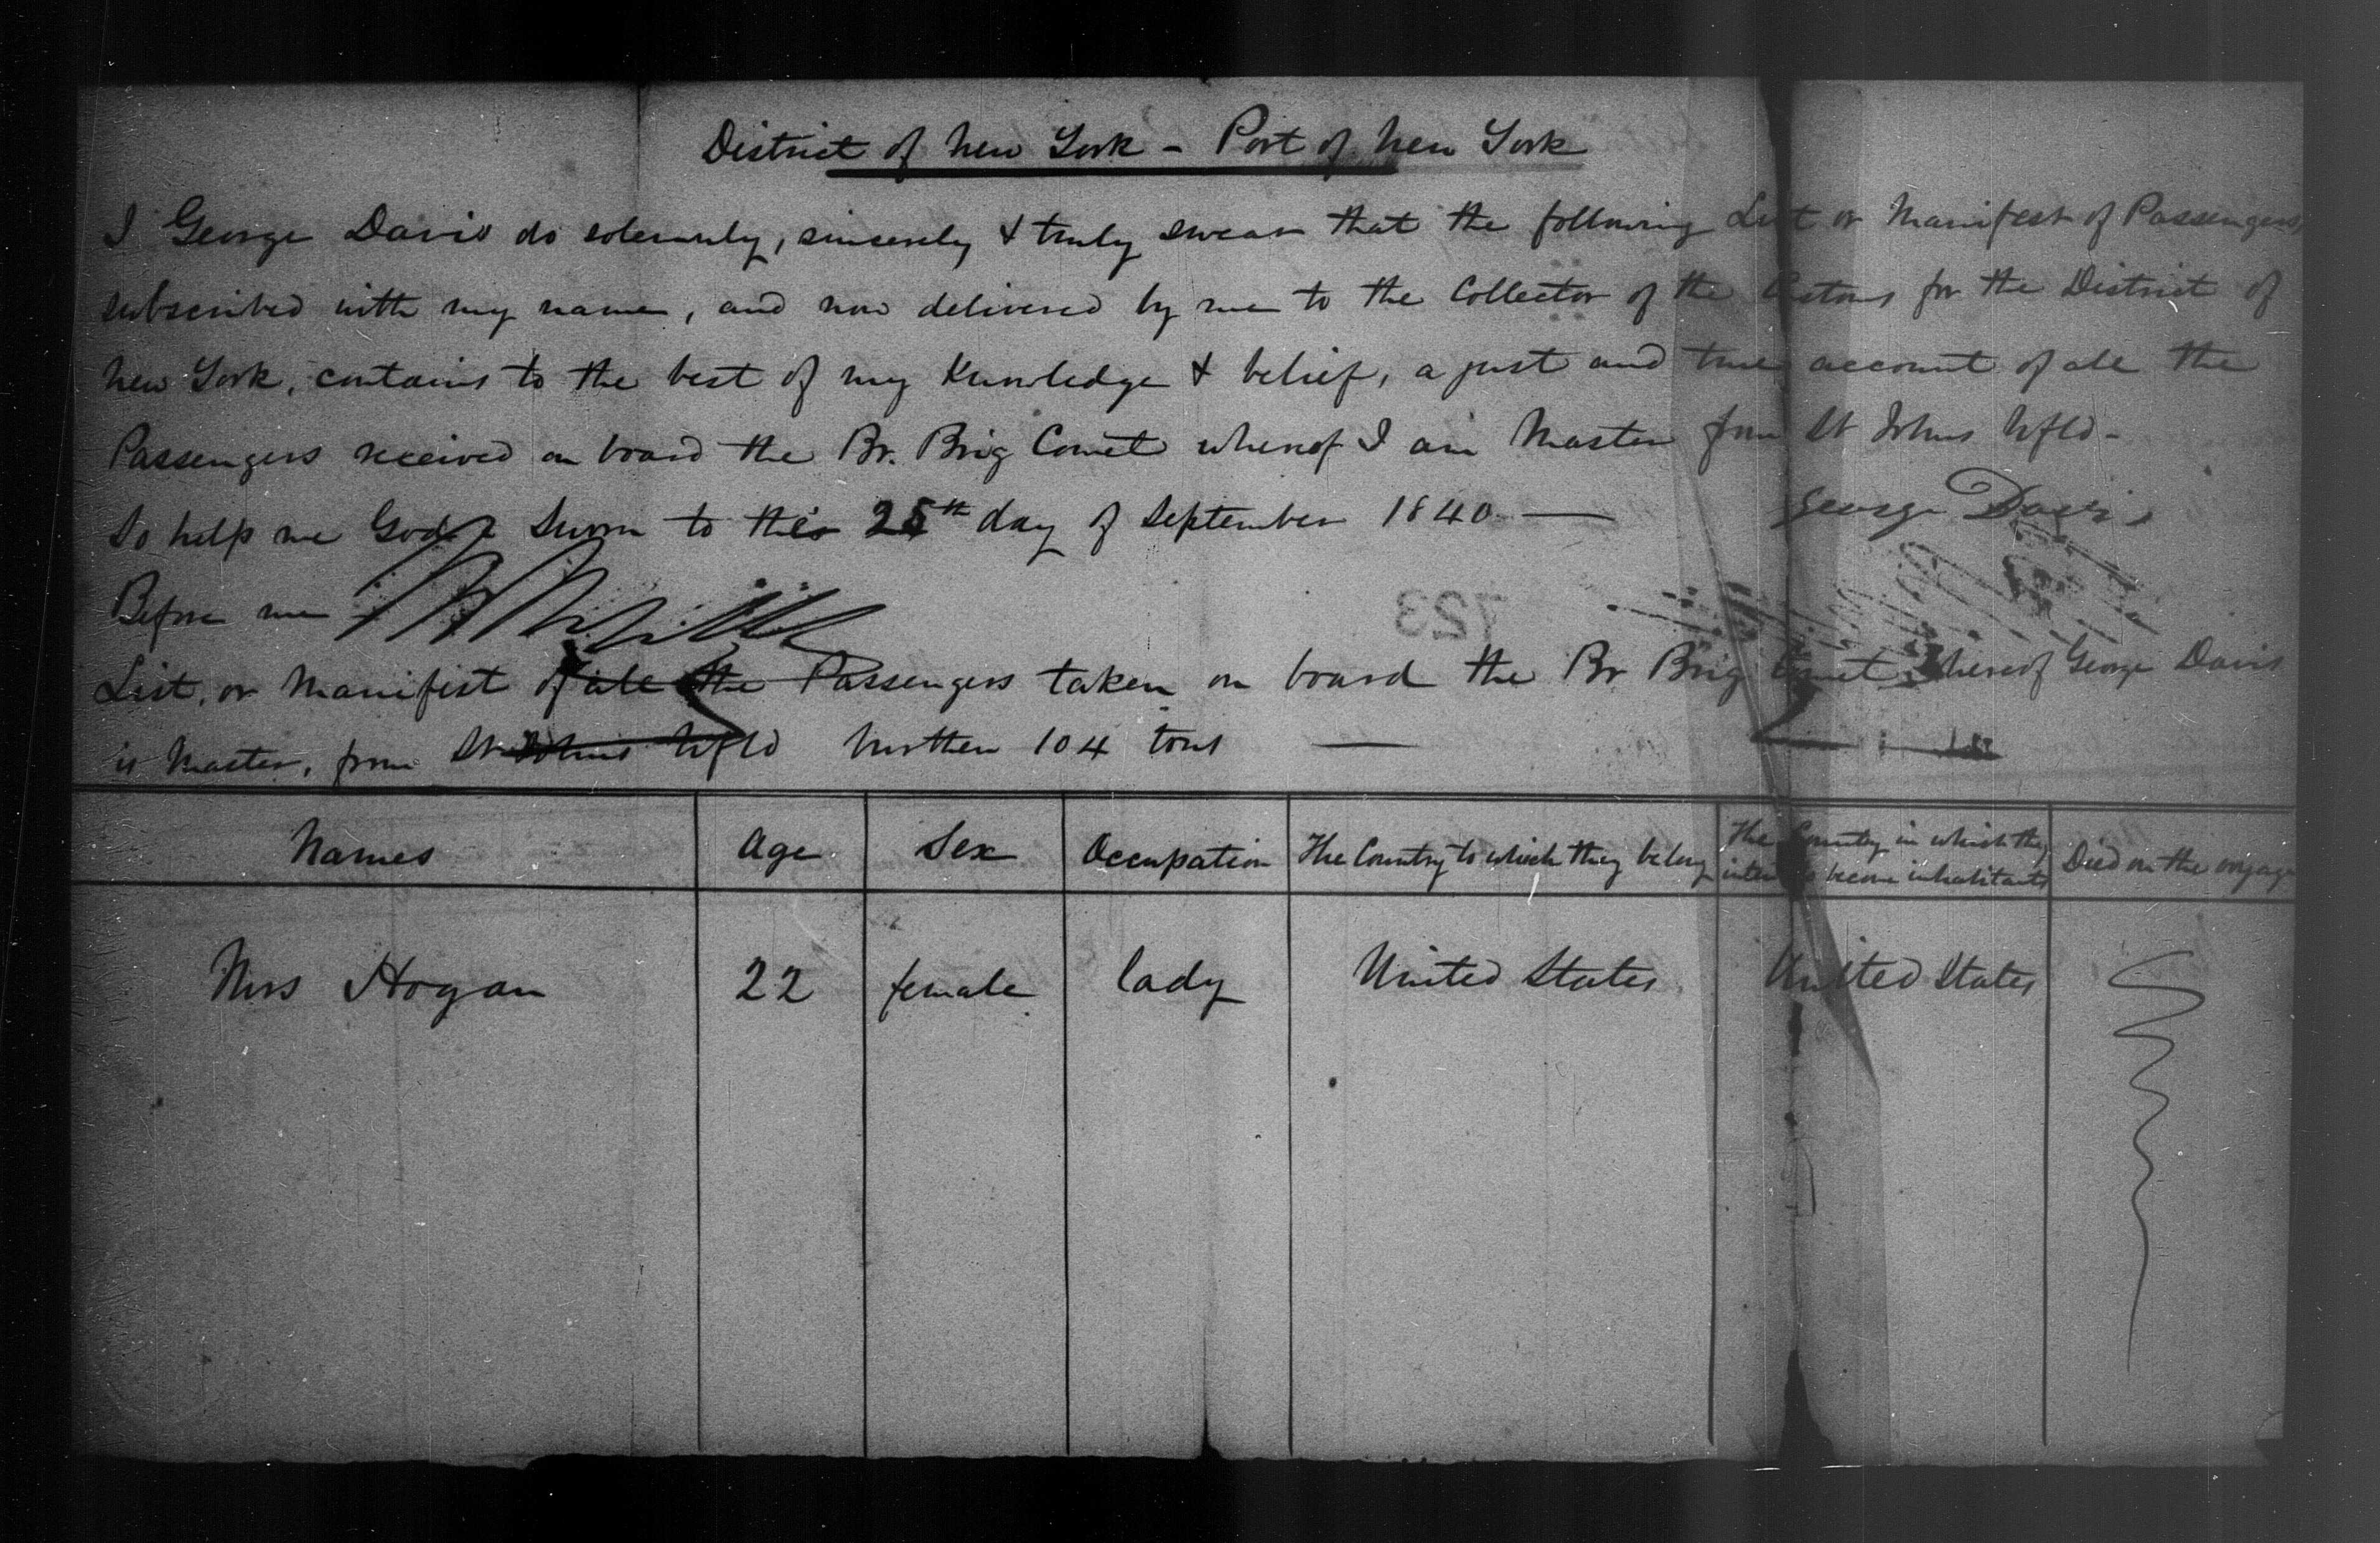 District of New York - Port of New York
I George Davis do solemnly, sincerely & truly swear that the following List or Manifest of Passengers,
subscribed with my name, and now delivered by me to the Collector of the Customs for the District of
New York, contains to the best of my Knowledge & belief, a just and true account of all the
Passengers received on board the Br. Brig Comet whereof I am Master from St Johns Nfld -
So help me God Sworn to this 25th day of September 1840 —
George Davis
Before me
723
List, or Manifest of all the Passengers taken on board the Br Brig Comet whereof George Davis
is Master, from St Johns Nfld burthen 104 tons —
Names Age Sex Occupation The Country to which they belong The Country in which they intend to become inhabitants Died on the voyage
Mrs Hogan 22 female lady United States United States